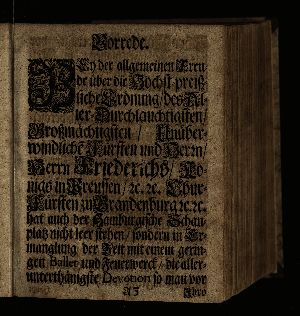 Vorrede.
BEy der allgemeinen Freu-
de über die Höchst-preiß-
liche Crönung/ des Al-
ler-Durchlauchtigsten/
Großmächtigsten / Unüber-
windlichē Fürsten und Herrn/
Herrn Friederichs/ Kö-
nigs in Preussen/ ꝛc. ꝛc. Chur-
Fürsten zu Brandenburg ꝛc. ꝛc.
hat auch der Hamburgische Schau-
platz nicht leer stehen/ sondern in Er-
manglung der Zeit mit einem gerin-
gen Ballet und Feuerwerck/ die aller-
unterthänigste Devotion so man vor
A 3 Ihro